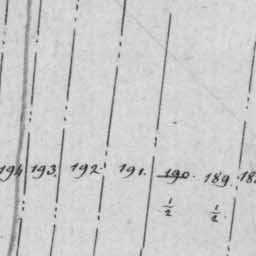 194 193. 192. 191. 190. 189. 188
½ ½.